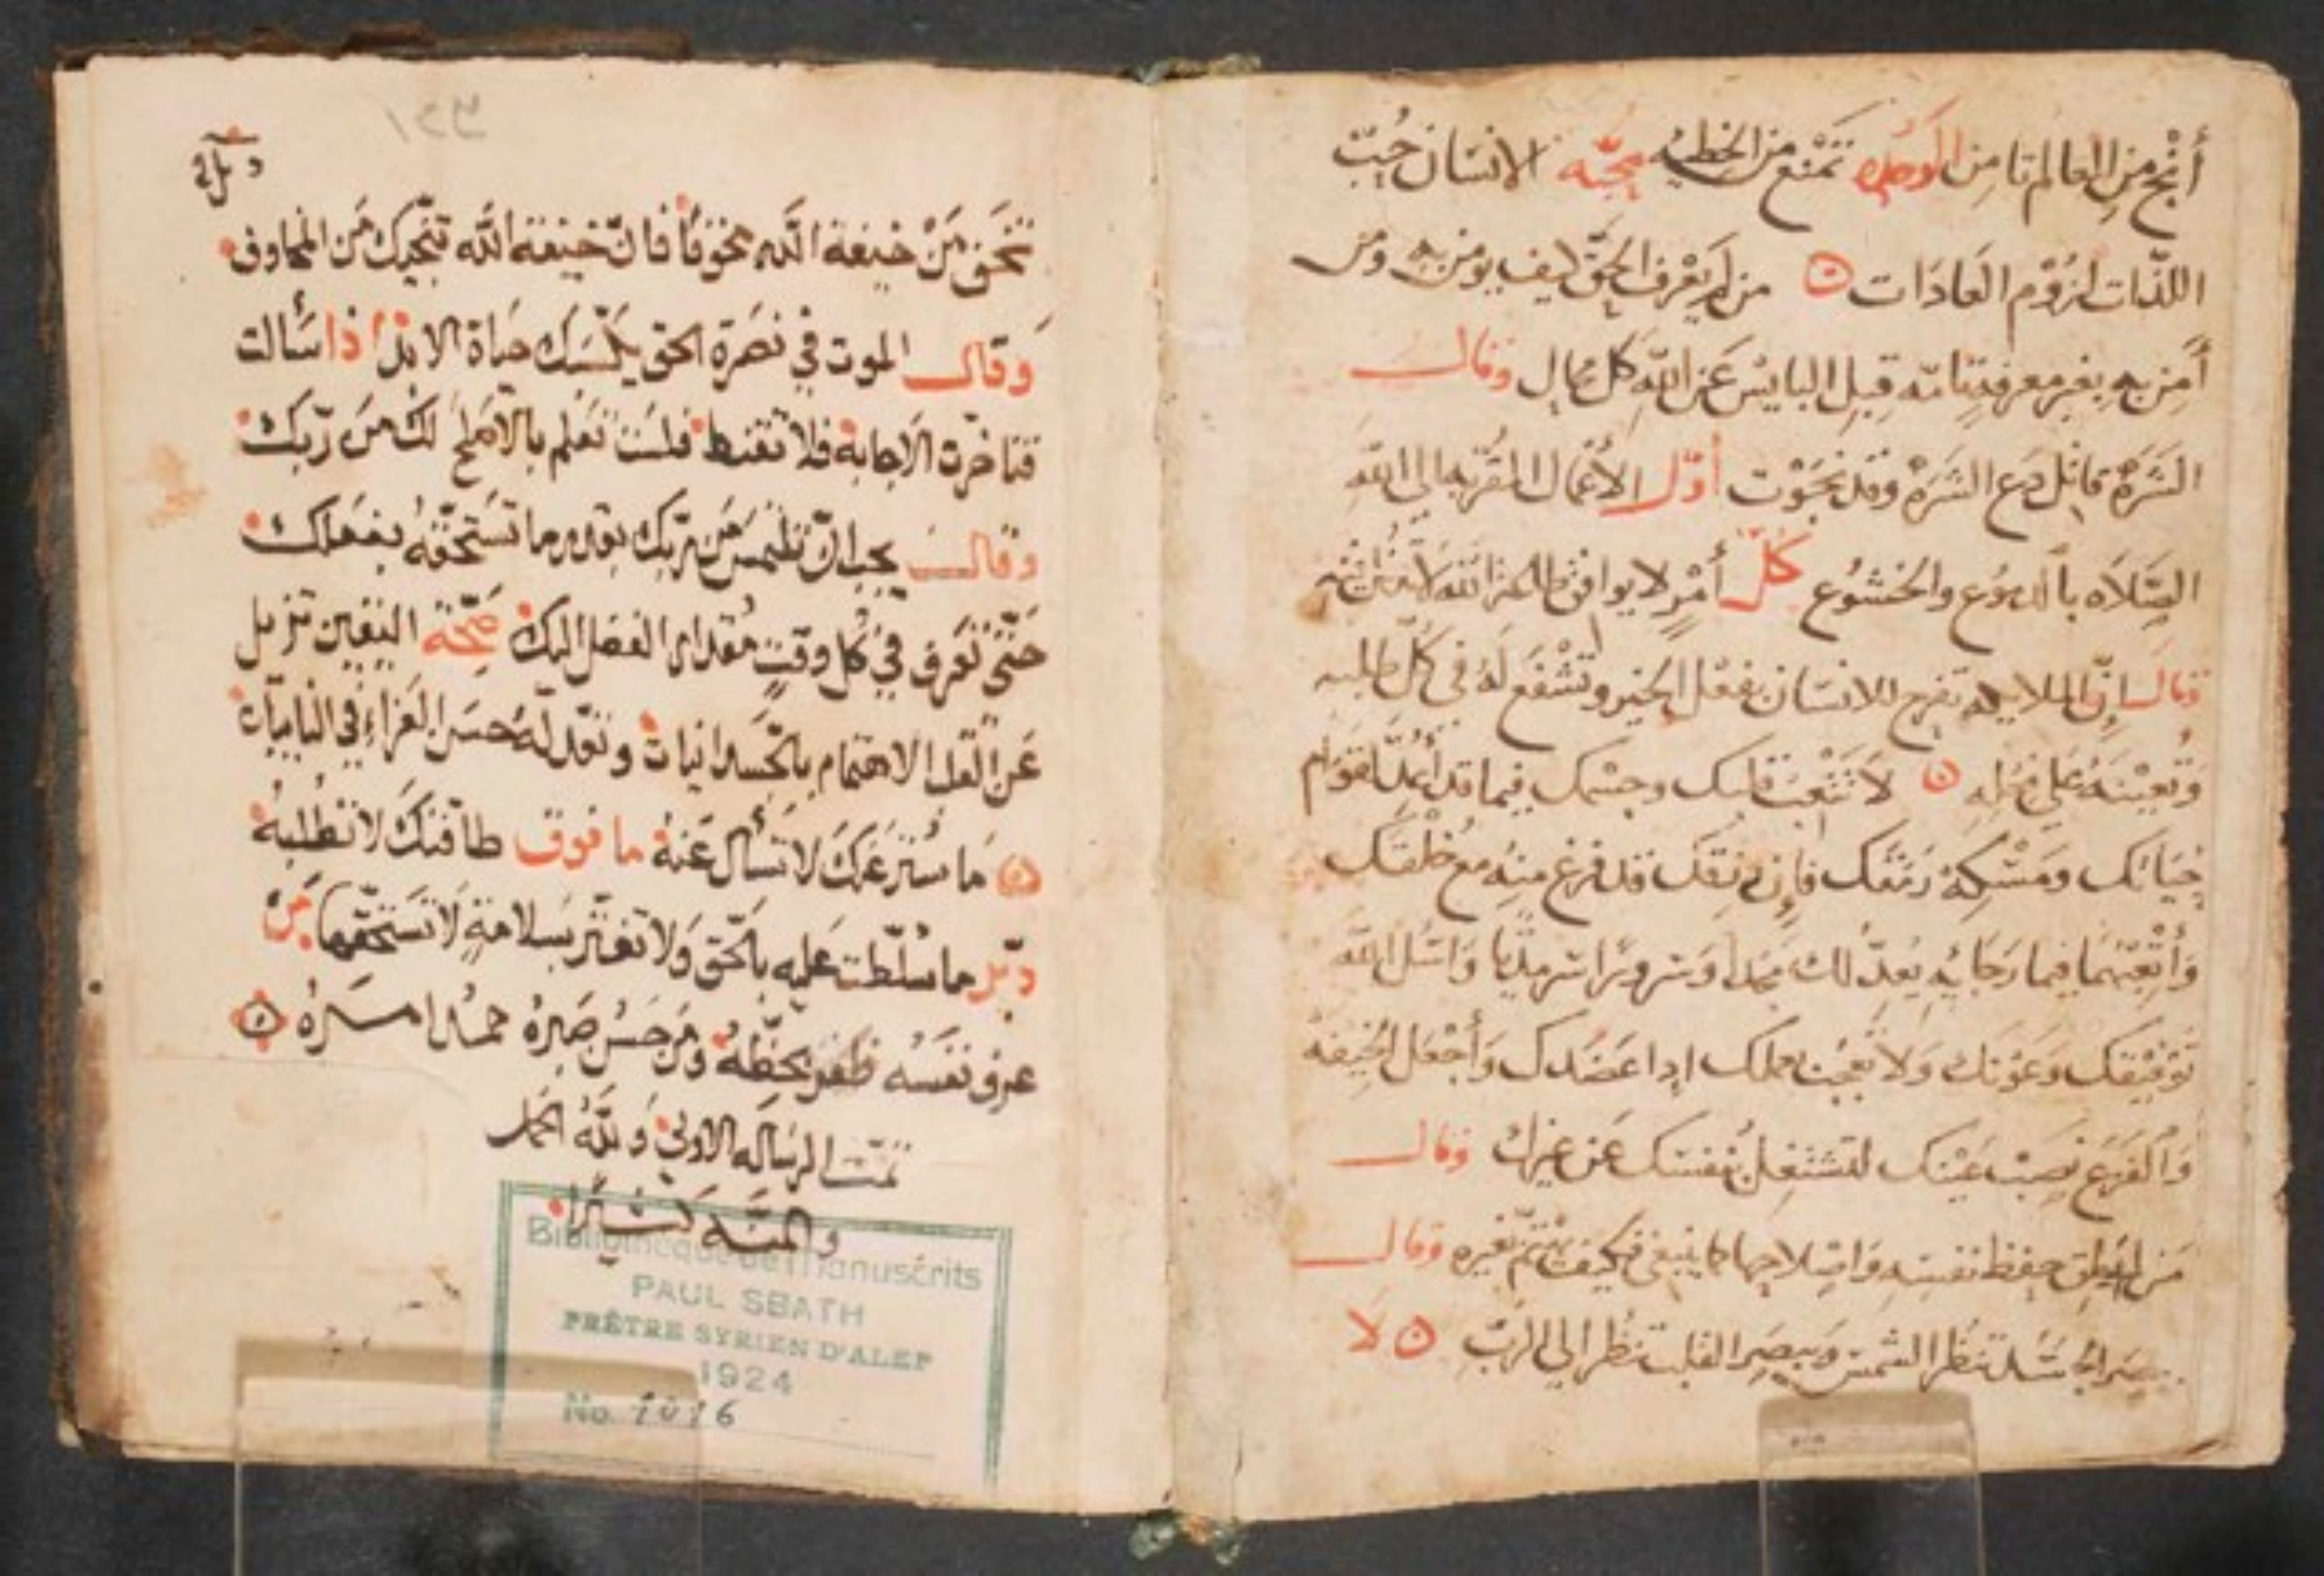 أنج من العالم تا من تمنع من الخطيه محبّه الانسان حُبّ
اللذّات لزوم العادَات من لم يعرف الحقّ كيف يومن به ومن
أمن به بغير معرفة قبل البايس عن الله كل مال وقال
الشَرَهْ دع الشَرَهْ وقد نجَوْت أوّل الأعمال المقرّبه الى الله
الصَّلاه بالدموع والخشوع كلّ أمْرٍ لا يوافق
قال إنّ الملايكه تفرح للانسان بفعْل الخير وتشْفَع لَهُ في كلّ طلبه
وتُعينهُ على لا تتْعبَ قلبك وجسْمك فيما قد أعدّ لقوام
حَيَاتك ومَسْكة رَمَقك فإن قد فرغ منه مع خلقتك
وَأتْعِبْهمَا فيما يُعدّ لك مجدا وسرورًا سرمديّا وَاسْئل الله
تَوْفيْقك وَعَوْنك وَلا بعملك ابدا عضدك وَأجْعَل الخيفة
وَالفَزع نصبْ عَيْنك لتشتغل بنفسك عَن غيرك وقال
مَن حفظ نفسه وَاصْلاحها كما ينبغي فكيف يهتمّ بغيره وقال
ببصر الجسَد تنظر الشمسَ وَببصر القلب تنظر الى الرَبّ لا
تخف مَنْ خيفة الله مخوفًا فانّ خيفة الله تنجّيك مَن المخاوف
وَقال الموت في نصَرة الحق يكسبَك حيَاة الابد اذا سَألت
فتاخّرت الاجابة فلا تقنط فلسَت تعلم بالاصلح لكَ مَن رَبّك
وقال يجب انّ تلتمسَ مَن ربّك بقدر ما تسَتحقّهُ بفعلك
حَتّى تعَرف في كل وقتٍ مقدار الفضل اليك صحّة اليقين تزيل
عَن القلب الاهتمام بالجسَدانيات وتعَدّ لهُ حسَن العَزاء في النايبات
مَا سُتر عَنك لا تسَأل عَنهُ ما فوق طاقتك لا تطلبهُ
دبّر ما سُلّطت عليه بالحَق وَلا تغترّ بسَلامةٍ لا تسَتحقّها مَن
عرف نفسَهُ ظفر بحظّهُ ومَن حَسُن صَبرهُ حمدُ امَرهُ
تمّت الرسَاله الاولى وَللّه الحمد
والمنّه كثيرًا
Bibliothèque de Manuscrits
PAUL SBATH
PRÊTRE SYRIEN D'ALEP
1924
No. 1016